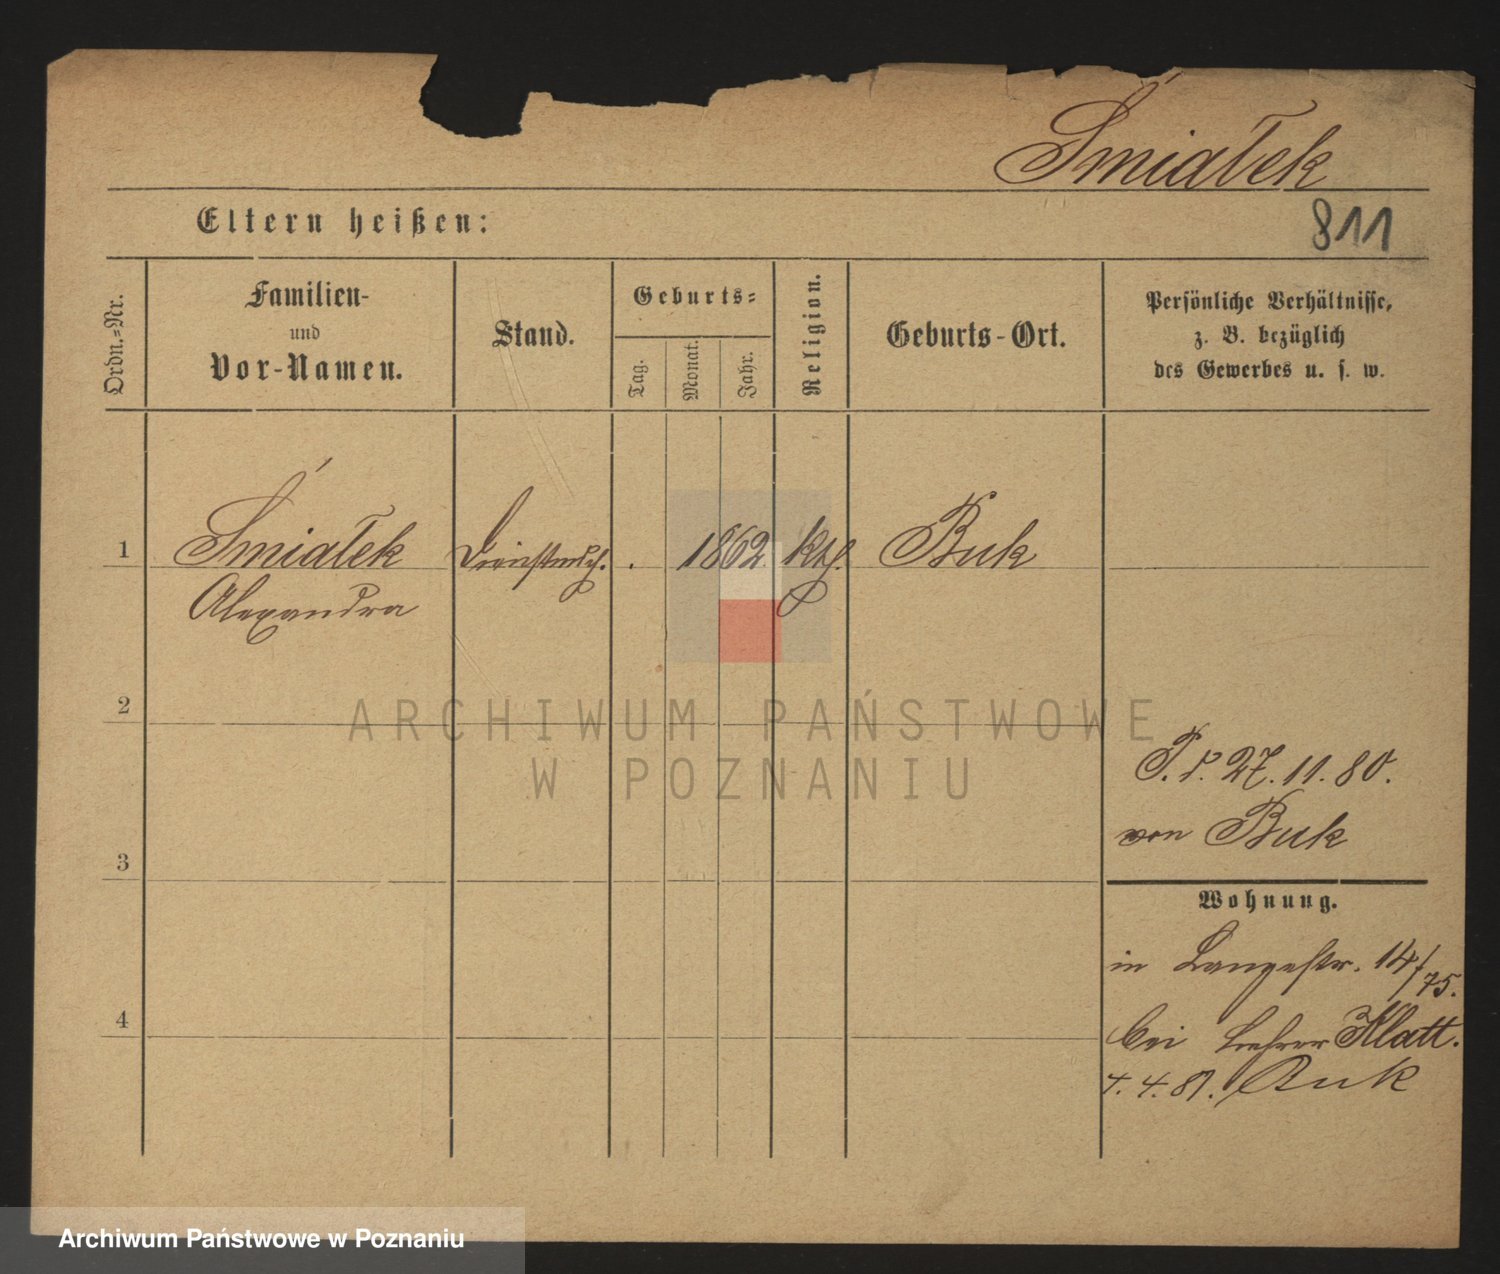 Śmiałek
Eltern heißen:
811
Ordn.-Nr.
Familien-
und
Vor-Namen.
Stand.
Geburts-
Tag.
Monat.
Jahr.
Religion.
Geburts-Ort.
Persönliche Verhältnisse,
z. B. bezüglich
des Gewerbes u. s. w.
1
Śmiałek
Alexandra
Dienstmdch.
1862
kth.
Buk
2
ARCHIWUM PAŃSTWOWE
W POZNANIU
27.11.80.
von Buk
3
Wohnung.
in Langestr. 14/75.
4
bei Lehrer Klatt.
4.81. Buk
Archiwum Państwowe w Poznaniu